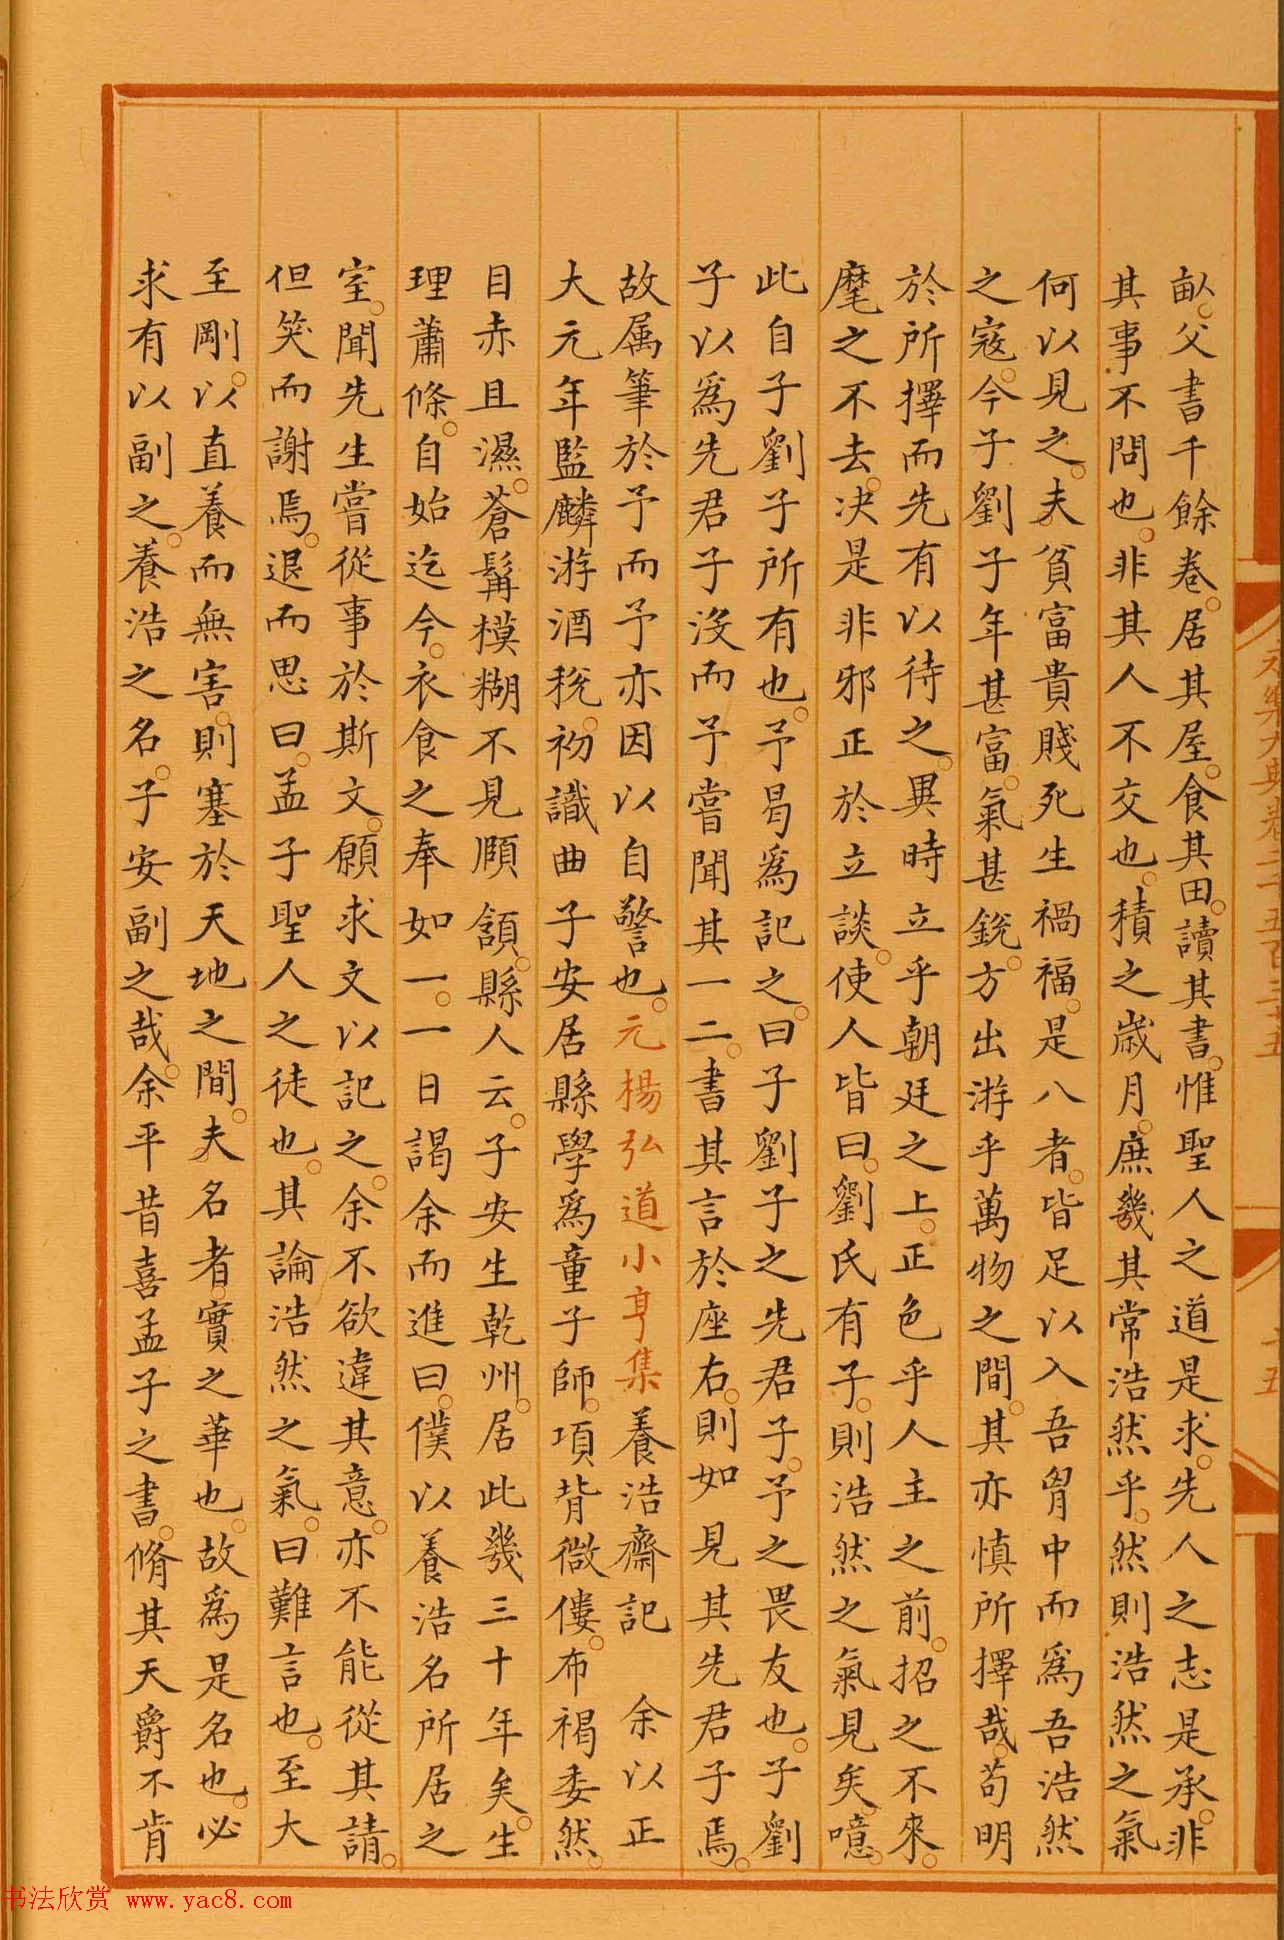 畝父書千餘卷居其屋食其田讀其書惟聖人之道是求先人之志是承非
其事不問也非其人不交也積之歲月庶幾其常浩然乎然則浩然之氣
何以見之夫貧富貴賤死生禍福是八者皆足以入吾胷中而爲吾浩然
之寇今子劉子年甚富氣甚銳方出游乎萬物之間其亦慎所擇哉苟明
於所擇而先有以待之異時立乎朝廷之上正色乎人主之前招之不來
麾之不去決是非邪正於立談使人皆曰劉氏有子則浩然之氣見矣噫
此自子劉子所有也予曷爲記之曰子劉子之先君子予之畏友也子劉
子以爲先君子沒而予嘗聞其一二書其言於座右則如見其先君子焉
故属筆於予而予亦因以自警也元楊弘道小亨集養浩齋記 余以正
大元年監麟游酒稅初識曲子安居縣學爲童子師項背微僂布褐委然
目赤且濕蒼髯模糊不見頤頷縣人云子安生乾州居此幾三十年矣生
理蕭條自始迄今衣食之奉如一一日謁余而進曰僕以養浩名所居之
室聞先生嘗從事於斯文願求文以記之余不欲違其意亦不能從其請
但笑而謝焉退而思曰孟子聖人之徒也其論浩然之氣曰難言也至大
至剛以直養而無害則塞於天地之間夫名者實之華也故爲是名也必
求有以副之養浩之名子安副之哉余平昔喜孟子之書脩其天爵不肯
永樂大典卷二千五百三十五
十五
书法欣赏 www.yac8.com